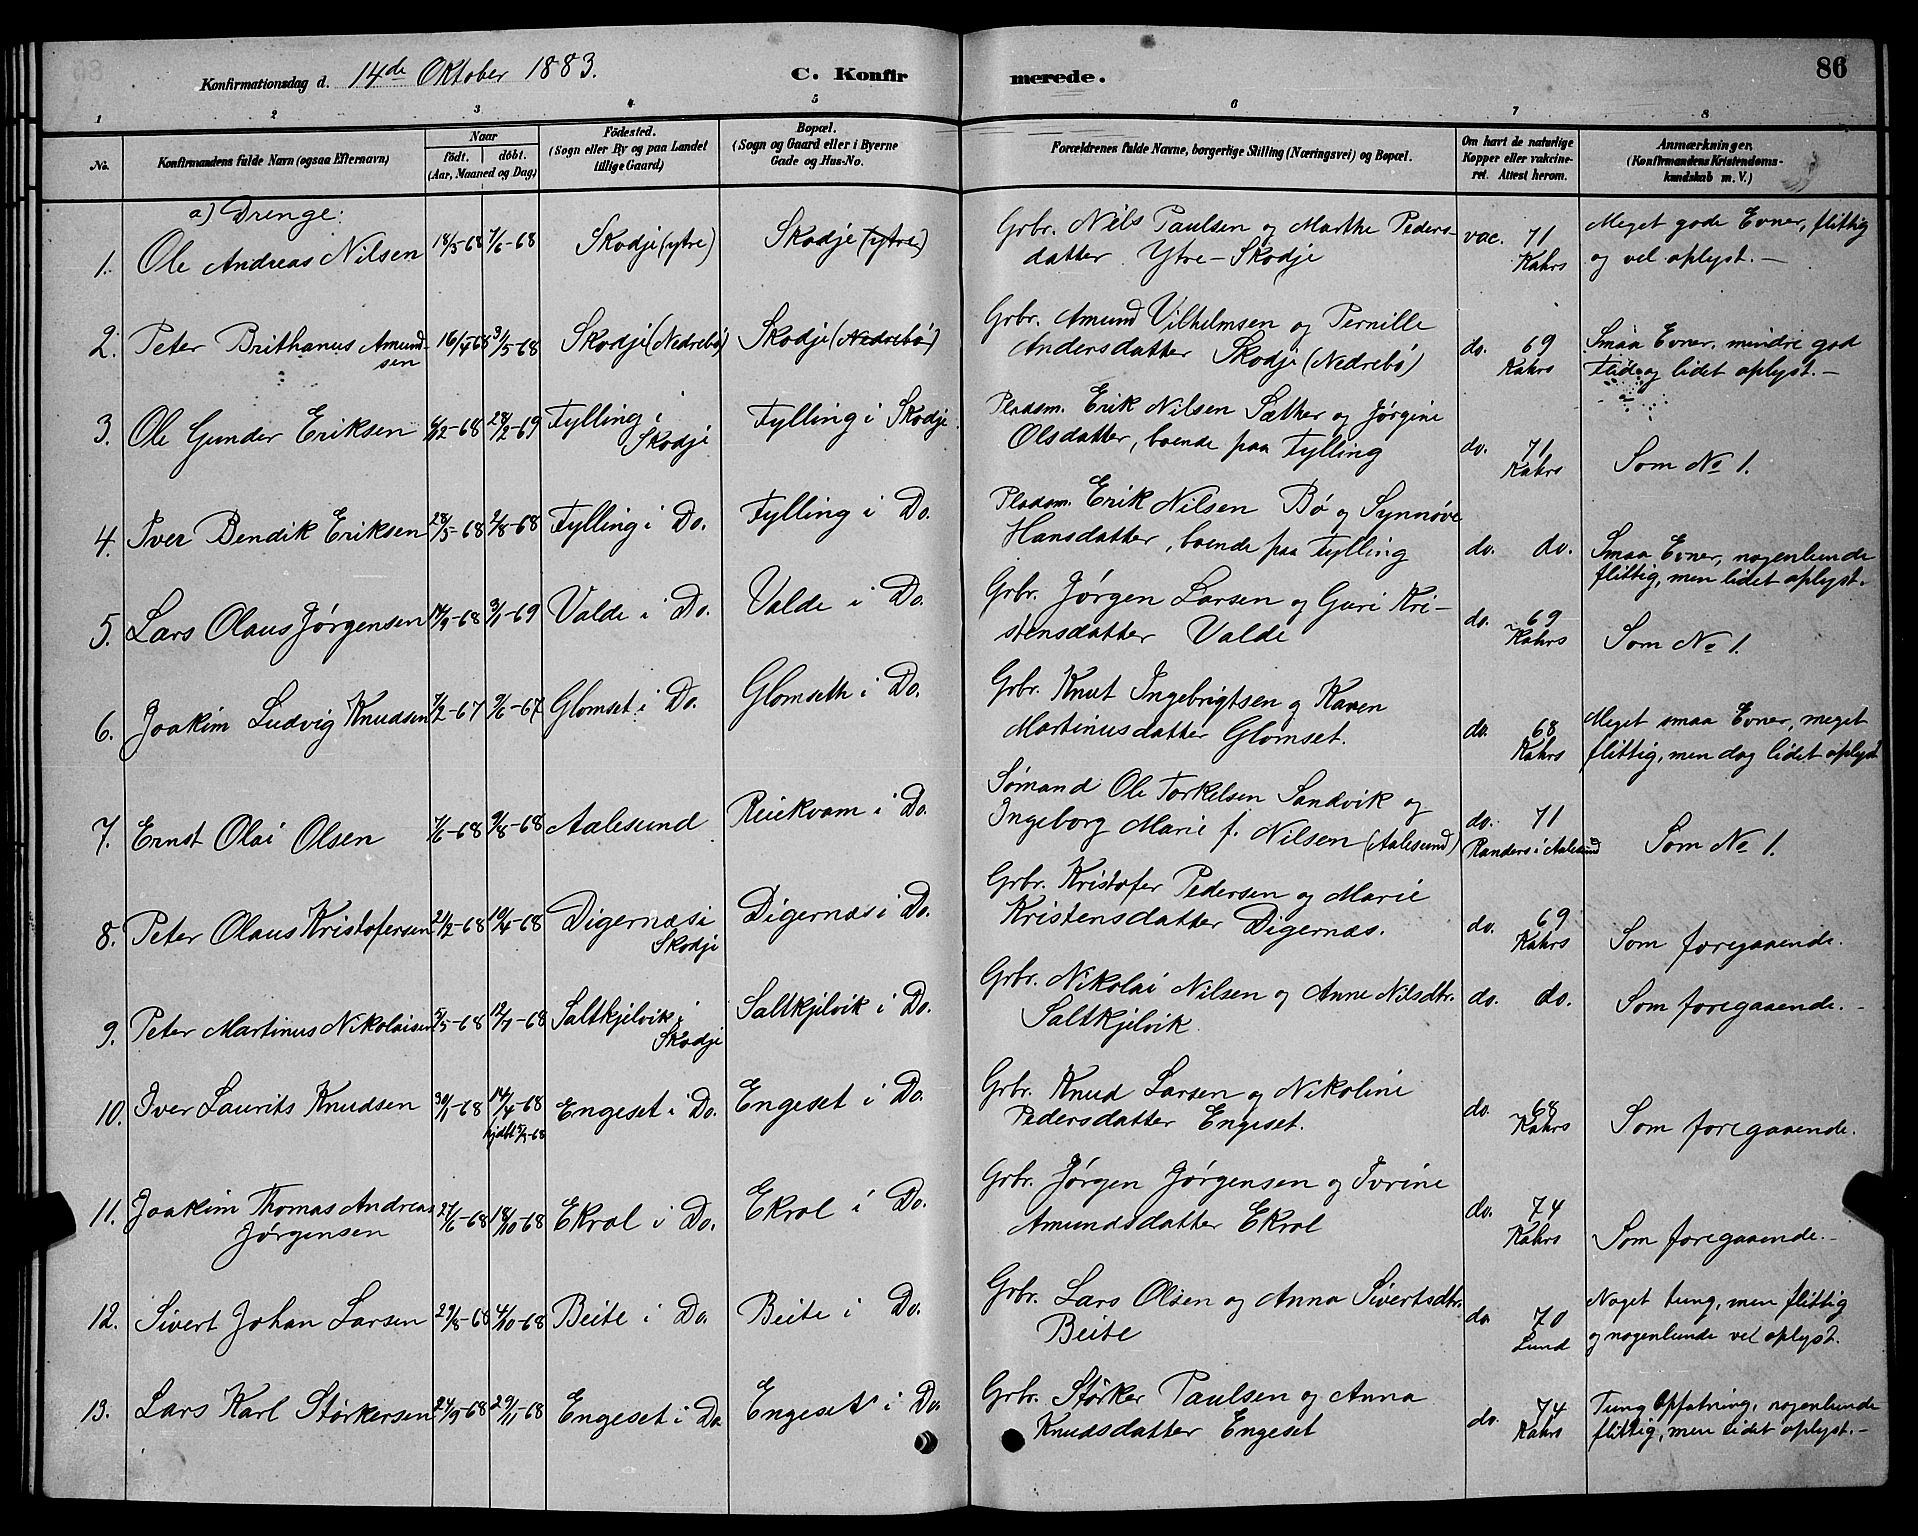 Konfirmationsdag d. 14de Oktober 1883. C. Konfirmerede. 86
1 2 3 4 5 6 7 8
No. Konfirmandens fulde Navn (ogsaa Efternavn) Naar født. døbt. (Aar, Maaned og Dag) Födested. (Sogn eller By og paa Landet tillige Gaard) Bopæl. (Sogn og Gaard eller i Byerne Gade og Hus-No. Forældrenes fulde Navne, borgerlige Stilling (Næringsvei) og Bopæl. Om havt de naturlige Kopper eller vakcineret. Attest herom. Anmærkninger. (Konfirmandens Kristendomskundskab m. V.)
a) Drenge:
1. Ole Andreas Nilsen 18/5-68 7/6-68 Skodje (ytre) Skodje (ytre) Grbr. Nils Paulsen og Marthe Peders-
datter Ytre-Skodje vac. 71 Kahrs Meget gode Evner, flittig
og vel oplyst.—
2. Peter Brithanus Amund-
sen 16/4-68 3/5-68 Skodje (Nedrebö) Skodje (Nedrebö) Grbr. Amund Vilhelmsen og Pernille
Andersdatter Skodje (Nedrebö) do. 69 Kahrs Smaa Evner, mindre god
Flid og lidet oplyst.—
3. Ole Gunder Eriksen 6/12-68 28/2-69 Fylling i
Skodje Fylling i Skodje. Pladsm. Erik Nilsen Sæther og Jørgine
Olsdatter, boende paa Fylling do. 71 Kahrs Som No 1.
4. Iver Bendik Eriksen 28/5-68 2/8-68 Fylling i Do. Fylling i Do. Pladsm. Erik Nilsen Bø og Synnøve
Hansdatter, boende paa Fylling do. do. Smaa Evner, nogenlunde
flittig, men lidet oplyst.
5. Lars Olaus Jørgensen 14/9-68 3/1-69 Valde i Do. Valde i Do. Grbr. Jørgen Larsen og Guri Kri-
stensdatter Valde do. 69 Kahrs Som No 1.
6. Joakim Ludvig Knudsen 7/2-67 9/6-67 Glomset i Do. Glomseth i Do. Grbr. Knut Ingebrigtsen og Karen
Martinusdatter Glomset. do. 68 Kahrs Meget smaa Evner, meget
flittig, men dog lidet oplyst
7. Ernst Olai Olsen 7/6-68 9/8-68 Aalesund Reiekvam i Do. Sømand Ole Torkelsen Sandvik og
Ingeborg Marie f. Nilsen (Aalesund) do. 71 Randers i Aalesund Som No 1.
8. Peter Olaus Kristofersen 21/2-68 10/4-68 Digernæs i
Skodje Digernæs i Do. Grbr. Kristofer Pedersen og Marie
Kristensdatter Digernæs. do. 69 Kahrs Som foregaaende.
9. Peter Martinus Nikolaisen 5/5-68 12/7-68 Saltkjelvik i
Skodje Saltkjelvik i Do. Grbr. Nikolai Nilsen og Anne Nilsdtr.
Saltkjelvik. do. do. Som foregaaende.—
10. Iver Laurits Knudsen 30/1-68 14/4-68
hjdbt 5/2-68 Engeset i Do. Engeset i Do. Grbr. Knud Larsen og Nikoline
Pedersdatter Engeset. do. 68 Kahrs Som foregaaende.
11. Joakim Thomas Andreas
Jørgensen 27/6-68 18/10-68 Ekrol i Do. Ekrol i Do. Grbr. Jørgen Jørgensen og Ivrine
Amundsdatter Ekrol do. 74 Kahrs Som foregaaende.—
12. Sivert Johan Larsen 29/8-68 4/10-68 Beite i Do. Beite i Do. Grbr. Lars Olsen og Anna Sivertsdtr.
Beite do. 70 Lund Noget tung, men flittig
og nogenlunde vel oplyst.
13. Lars Karl Størkersen 24/9-68 29/11-68 Engeset i Do. Engeset i Do. Grbr. Størker Paulsen og Anna
Knudsdatter Engeset do. 74 Kahrs Tung Opfatning, nogenlunde
flittig, men lidet oplyst.—